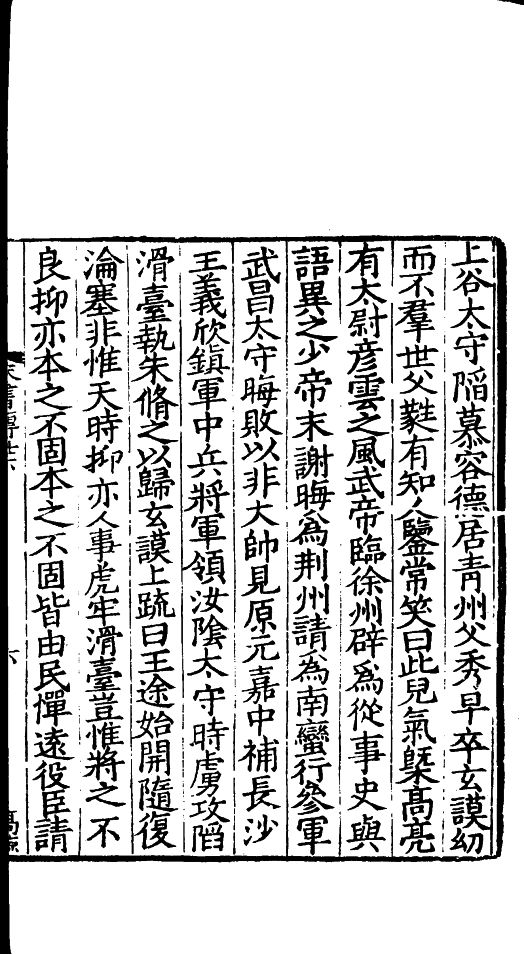 上谷太守陷慕容德居青州父秀早卒玄謨幼
而不羣世父蕤有知人鑒常笑曰此兒氣槩髙亮
有太尉彦雲之風武帝臨徐州辟爲從事史與
語異之少帝末謝晦爲荆州請爲南蠻行參軍
武昌太守晦敗以非大帥見原元嘉中補長沙
王義欣鎮軍中兵將軍領汝隂太守時虜攻䧟
滑臺執朱脩之以歸玄謨上疏曰王途始開隨復
淪塞非惟天時抑亦人事虎牢滑臺豈惟將之不
良抑亦本之不固本之不固皆由民憚遠役臣請
宋書傳卅六
六